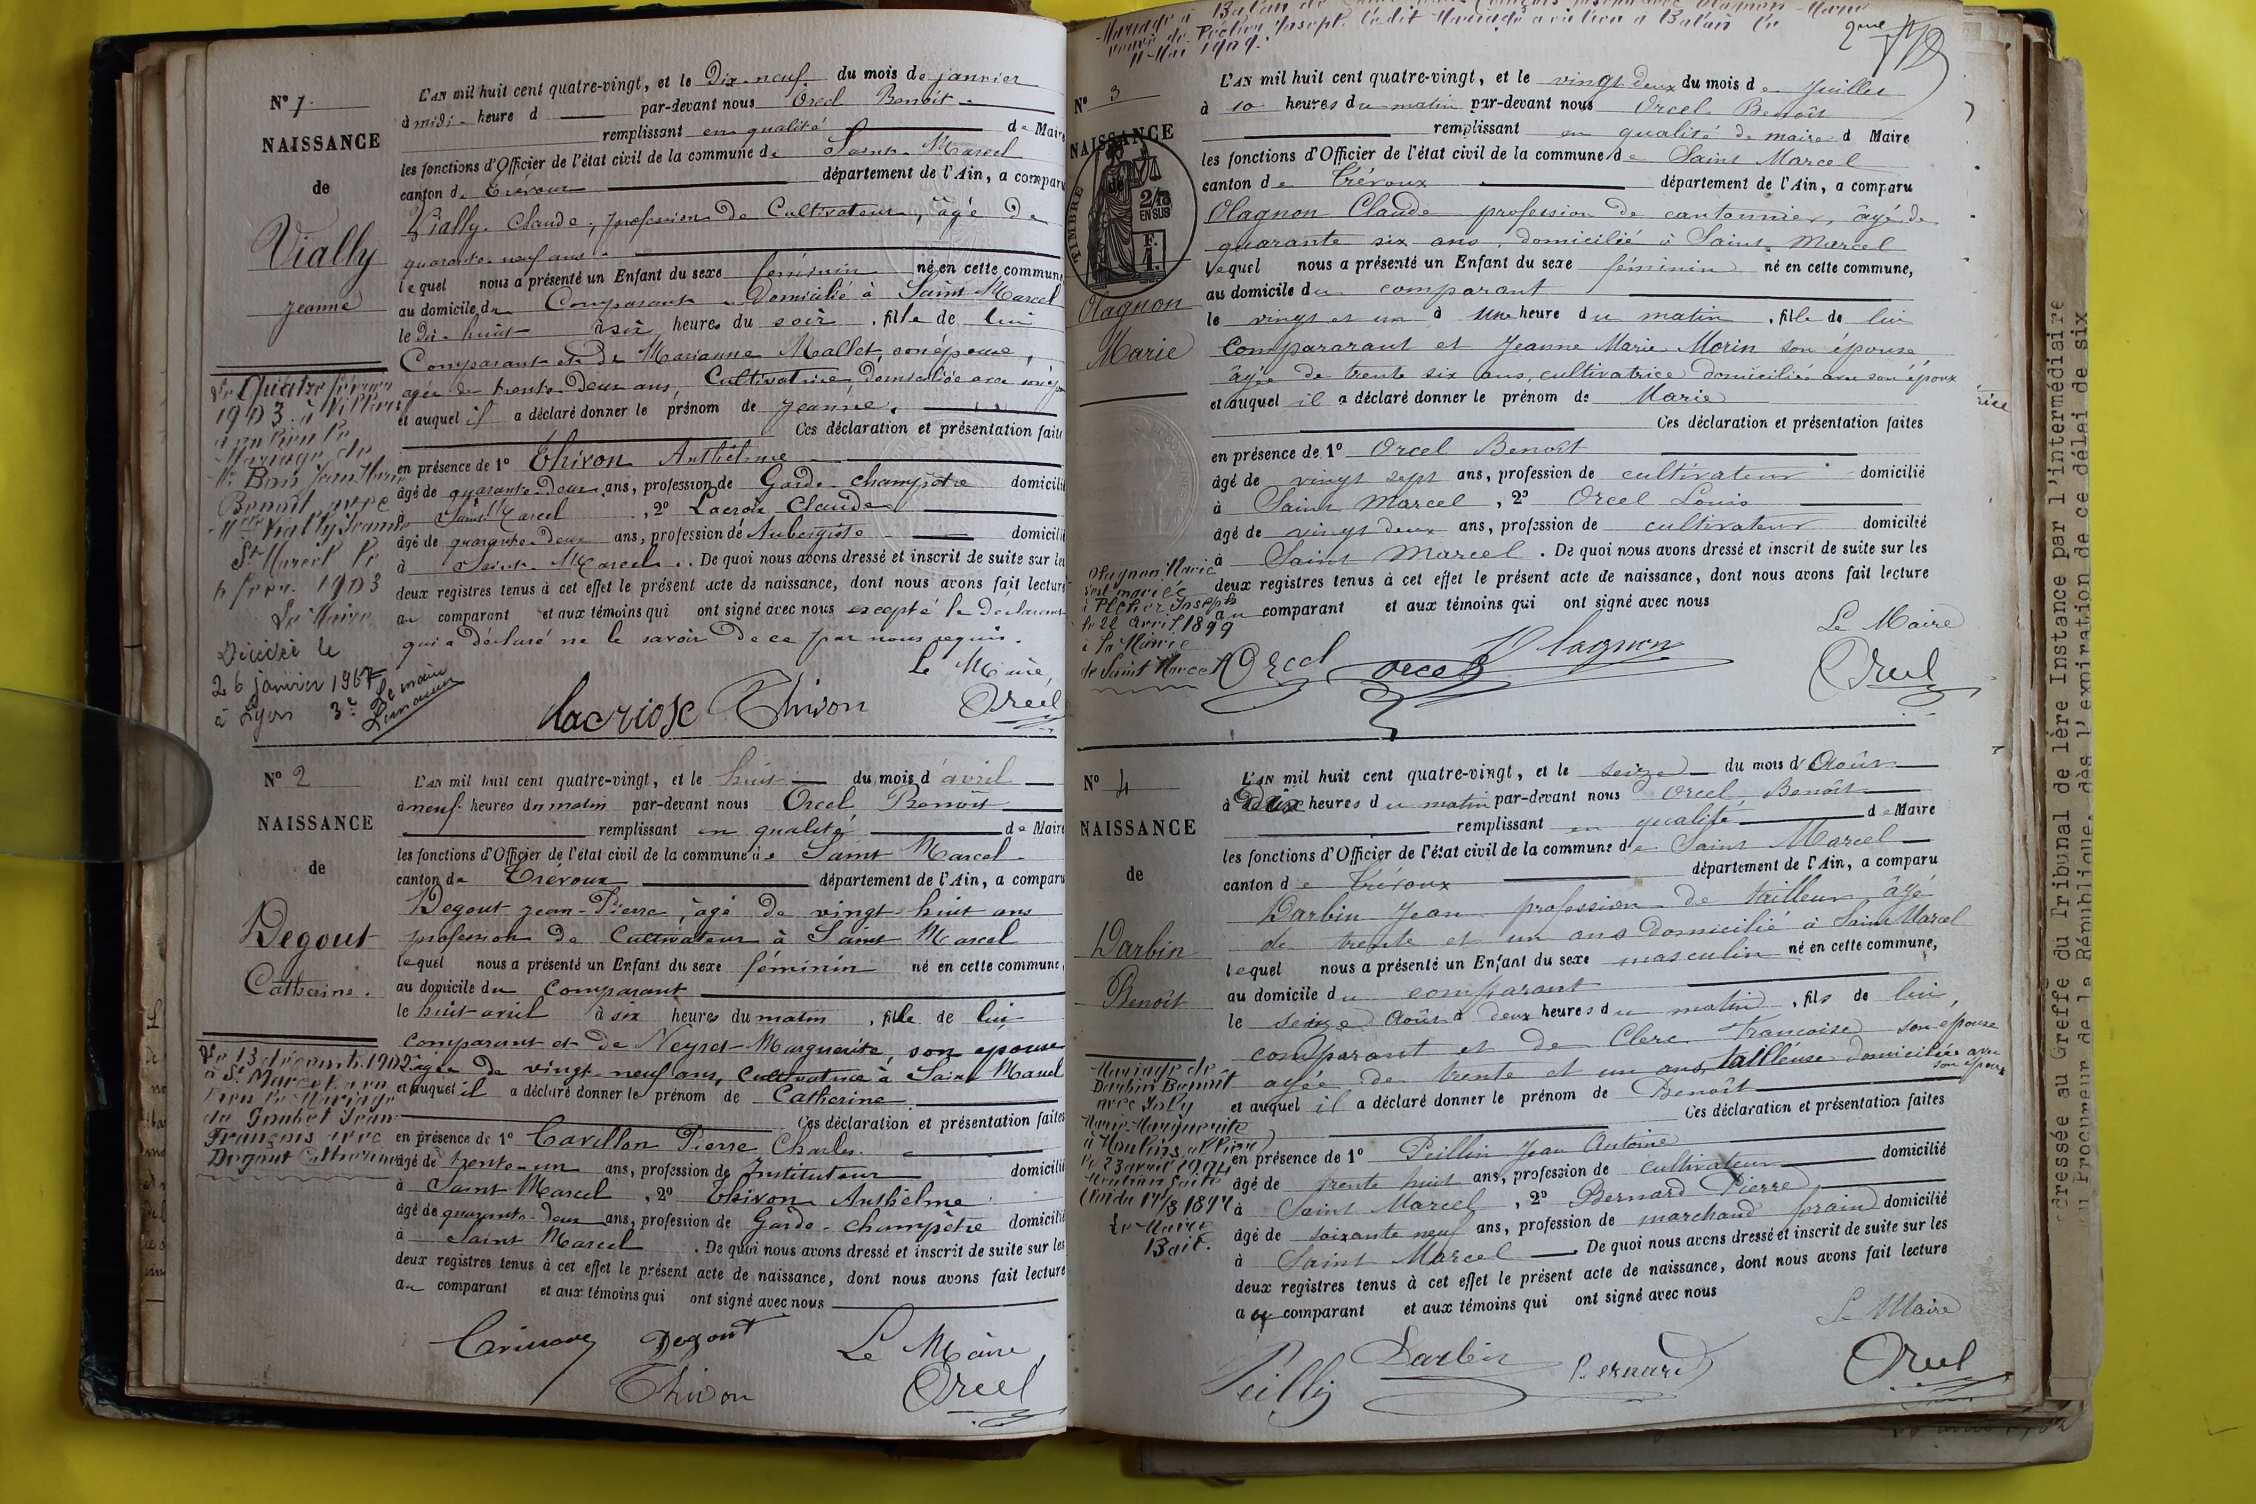 N° 1.
NAISSANCE
de
Vially
Jeanne
L'AN mil huit cent quatre-vingt, et le Dix-neuf du mois de janvier
à midi heure d par-devant nous Orcel Benoit
remplissant en qualité de Maire
les fonctions d'Officier de l'état civil de la commune de Saint-Marcel
canton de Trévoux département de l'Ain, a comparu
Vially Claude, profession de Cultivateur, âgé de
quarante-neuf ans
lequel nous a présenté un Enfant du sexe féminin né en cette commune
au domicile du Comparant Domicilié à Saint Marcel
le Dix-huit à six heures du soir, fille de lui
Comparant et de Marianne Mallet son épouse,
agée de trente-Deux ans, Cultivatrice domiciliée avec son ép
et auquel il a déclaré donner le prénom de Jeanne.
Ces déclaration et présentation faites
en présence de 1° Thivon Anthélme
âgé de quarante-deux ans, profession de Garde-champêtre domicilié
à Saint Marcel, 2° Lacroix Claude
âgé de quarante-Deux ans, profession de Aubergiste domicilié
à Saint-Marcel. De quoi nous avons dressé et inscrit de suite sur les
deux registres tenus à cet effet le présent acte de naissance, dont nous avons fait lecture
au comparant et aux témoins qui ont signé avec nous excepté le déclarant
qui a déclaré ne le savoir de ce par nous requis.
Le Maire,
lacriose Thivon Orcel
Le Quatre février
1903 à
a eu lieu le
Mariage de
Mr Bois Jean Marie
Benoît avec
Melle Vially Jeanne
St Marcel le
4 févr. 1903
Le Maire
Décédée le
26 janvier 1967
à Lyon 3e
Le maire
N° 2
NAISSANCE
de
Degout
Catherine.
L'AN mil huit cent quatre-vingt, et le huit du mois d'avril
à neuf heures du matin par-devant nous Orcel Benoît
remplissant en qualité de Maire
les fonctions d'Officier de l'état civil de la commune de Saint Marcel
canton de Trévoux département de l'Ain, a comparu
Degout Jean-Pierre, âgé de vingt-huit ans
profession de Cultivateur à Saint Marcel
lequel nous a présenté un Enfant du sexe féminin né en cette commune,
au domicile du comparant
le huit avril à six heures du matin, fille de lui
comparant et de Neyret Marguerite, son épouse
agée de vingt-neuf ans, Cultivatrice à Saint Marcel
et auquel il a déclaré donner le prénom de Catherine
Ces déclaration et présentation faites
en présence de 1° Cavillon Pierre Charles
âgé de trente-un ans, profession de Instituteur domicilié
à Saint-Marcel, 2° Thivon Anthélme
âgé de quarante-deux ans, profession de Garde-champêtre domicilié
à Saint Marcel. De quoi nous avons dressé et inscrit de suite sur les
deux registres tenus à cet effet le présent acte de naissance, dont nous avons fait lecture
au comparant et aux témoins qui ont signé avec nous
Degout Le Maire,
Thivon Orcel
Le 13 décembre 1902
à St Marcel a eu
lieu le Mariage
de Goubet Jean
François avec
Degout Catherine
Mariage à Balan
veuve de Plecher Joseph. Ledit Mariage a eu lieu à Balan le
Mai 1909.
2me
N° 3
NAISSANCE
de
TIMBRE
2/10
EN SUS
F.
1.
Olagnon
Marie
L'AN mil huit cent quatre-vingt, et le vingt deux du mois de Juillet
à 10 heures du matin par-devant nous Orcel Benoît
remplissant en qualité de maire d Maire
les fonctions d'Officier de l'état civil de la commune de Saint Marcel
canton de Trévoux département de l'Ain, a comparu
Olagnon Claude profession de cantonnier, âgé de
quarante six ans, domicilié à Saint Marcel
lequel nous a présenté un Enfant du sexe féminin né en cette commune,
au domicile du comparant
le vingt et un à une heure du matin, fille de lui
Compararant et Jeanne Marie Morin son épouse
âgée de trente six ans, cultivatrice domiciliée avec son époux
et auquel il a déclaré donner le prénom de Marie
Ces déclaration et présentation faites
en présence de 1° Orcel Benoît
âgé de vingt sept ans, profession de cultivateur domicilié
à Saint Marcel, 2° Orcel Louis
âgé de vingt deux ans, profession de cultivateur domicilié
à Saint Marcel. De quoi nous avons dressé et inscrit de suite sur les
deux registres tenus à cet effet le présent acte de naissance, dont nous avons fait lecture
au comparant et aux témoins qui ont signé avec nous
Le Maire
Orcel Orcel Olagnon Orcel
Olagnon Marie
s'est mariée
à Plecher Joseph
le 22 avril 1899
à la Mairie
de Saint Marcel
N° 4
NAISSANCE
de
Darbin
Benoît
L'AN mil huit cent quatre-vingt, et le seize du mois d'Août
à Dix heures du matin par-devant nous Orcel Benoît
remplissant en qualité de Maire
les fonctions d'Officier de l'état civil de la commune de Saint Marcel
canton de Trévoux département de l'Ain, a comparu
Darbin Jean profession de tailleur âgé
de trente et un ans domicilié à Saint Marcel
lequel nous a présenté un Enfant du sexe masculin né en cette commune,
au domicile du comparant
le seize Août à deux heures du matin, fils de lui,
comparant et de Clerc Francoise son epouse
agée de trente et un ans tailleuse domiciliée avec
son époux
et auquel il a déclaré donner le prénom de Benoît
Ces déclaration et présentation faites
en présence de 1° Peillin Jean Antoine
âgé de trente huit ans, profession de cultivateur domicilié
à Saint Marcel, 2° Bernard Pierre
âgé de soixante neuf ans, profession de marchand forain domicilié
à Saint Marcel. De quoi nous avons dressé et inscrit de suite sur les
deux registres tenus à cet effet le présent acte de naissance, dont nous avons fait lecture
au comparant et aux témoins qui ont signé avec nous
Le Maire
Peillin Darbin Bernard Orcel
Mariage de
Darbin Benoît
avec Joly
Marie-Marguerite
à Moulins (Allier)
le 23 avril 1904
Le Maire
dressée au Greffe du Tribunal de 1ère Instance par l'intermédiaire
du Procureur de la République, dès l'expiration de ce délai de six